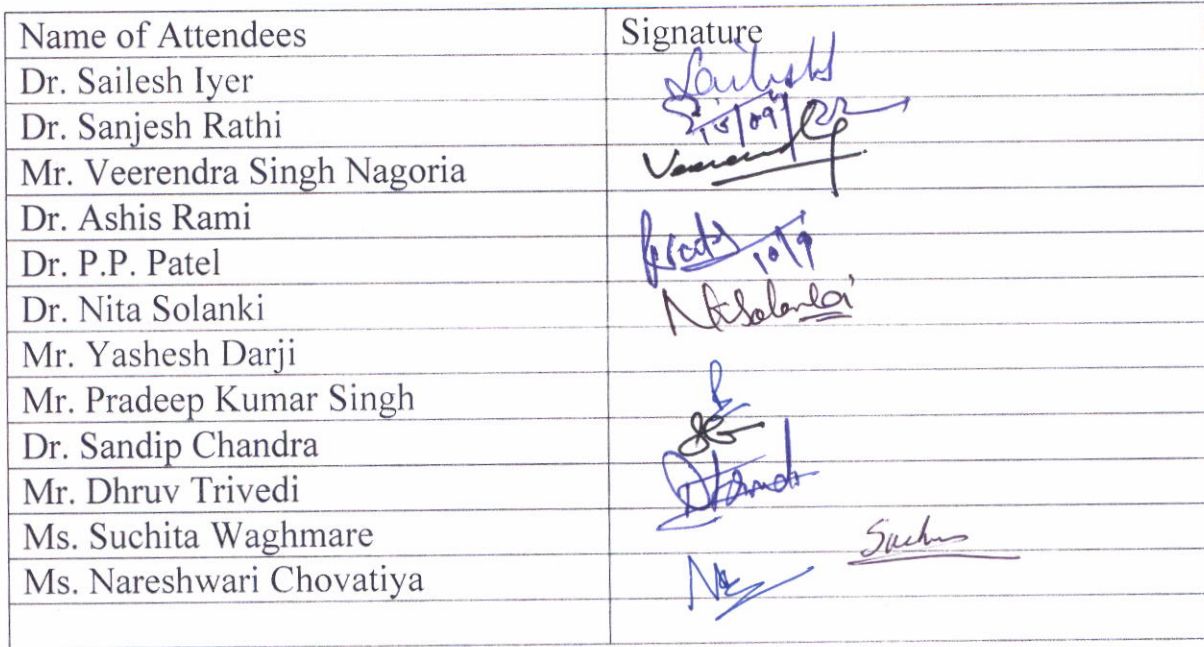 Name of Attendees Signature
Dr. Sailesh Iyer Sailesh
Dr. Sanjesh Rathi 15/09/22
Mr. Veerendra Singh Nagoria
Dr. Ashis Rami
Dr. P.P. Patel 10/9
Dr. Nita Solanki NSolanki
Mr. Yashesh Darji
Mr. Pradeep Kumar Singh
Dr. Sandip Chandra
Mr. Dhruv Trivedi
Ms. Suchita Waghmare
Ms. Nareshwari Chovatiya